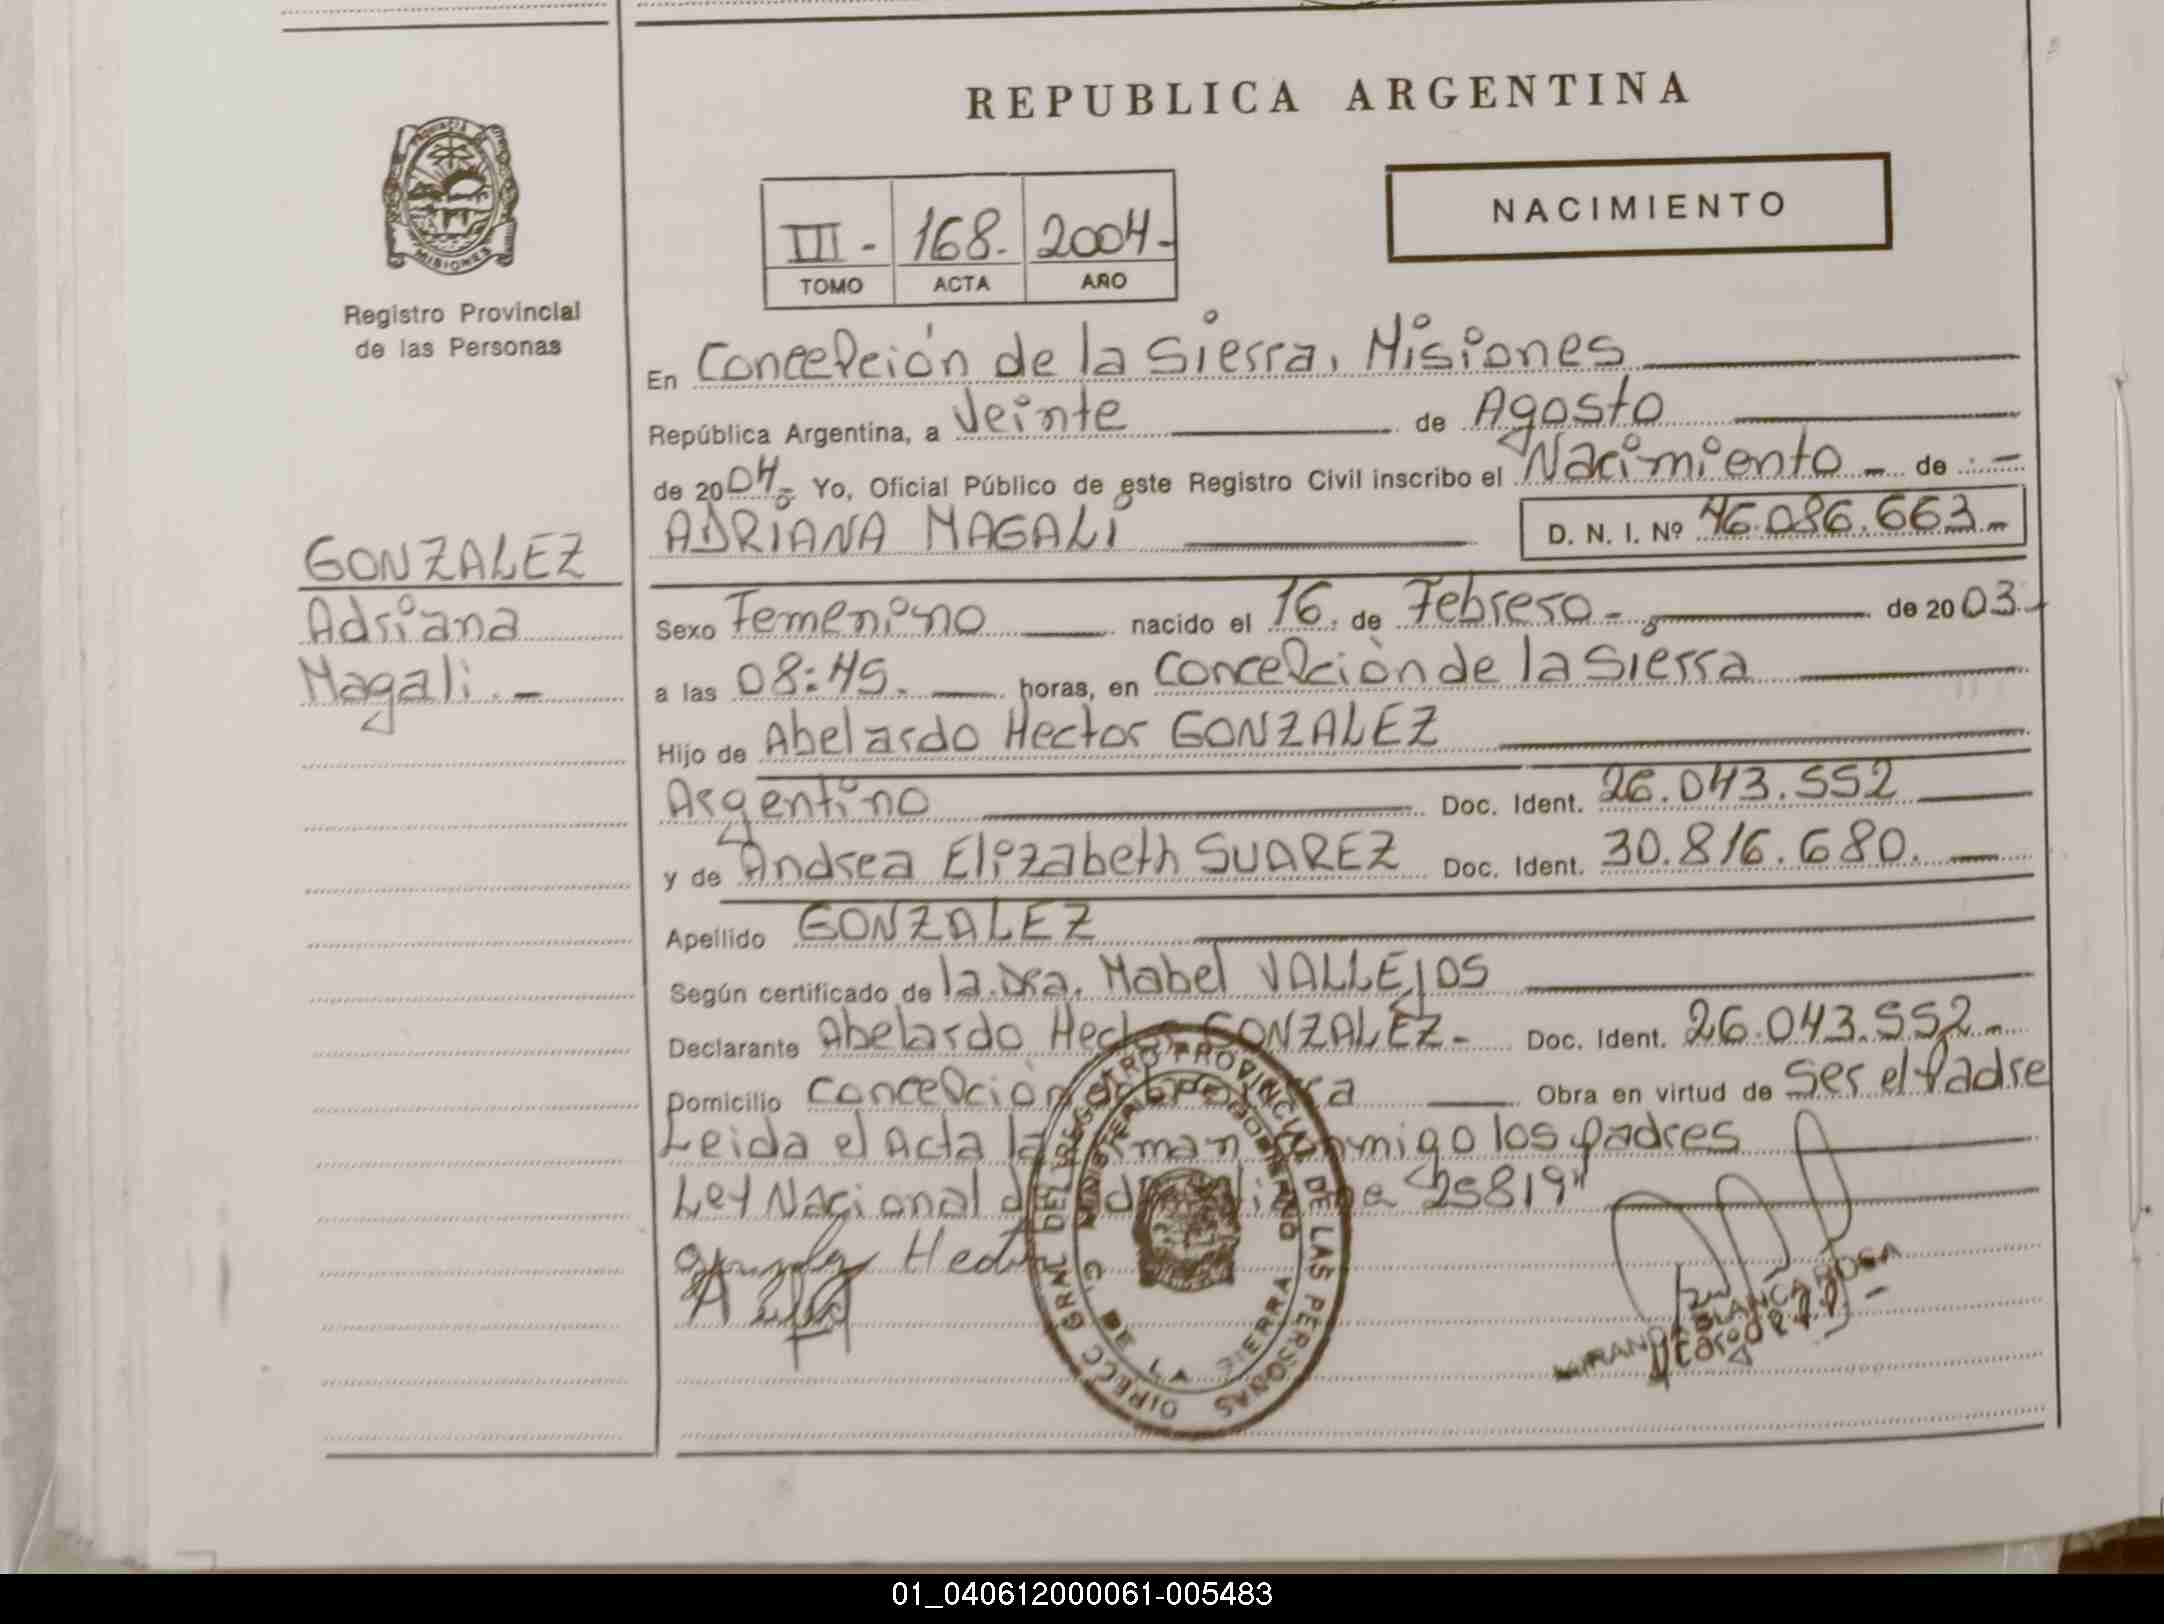 REPUBLICA ARGENTINA
NACIMIENTO
III- 168- 2004-
TOMO ACTA AÑO
MISIONES
Registro Provincial
de las Personas
En Concepción de la Sierra, Misiones
República Argentina, a Veinte de Agosto
de 2004- Yo, Oficial Público de este Registro Civil inscribo el Nacimiento - de -
ADRIANA MAGALI D. N. I. Nº 46.086.663-
GONZALEZ
Adriana
Magali.-
Sexo Femenino nacido el 16. de Febrero- de 2003-
a las 08:45. horas, en Concepción de la Sierra
Hijo de Abelardo Hector GONZALEZ
Argentino Doc. Ident. 26.043.552
y de Andrea Elizabeth SUAREZ Doc. Ident. 30.816.680.
Apellido GONZALEZ
Según certificado de la Dra. Mabel VALLEJOS
Declarante Abelardo Hector GONZALEZ- Doc. Ident. 26.043.552-
Domicilio Concepción de la Sierra Obra en virtud de Ser el Padre
Leida el Acta la firman conmigo los padres
Ley Nacional de "25819"
Hector
DIRECC GRAL DEL REGISTRO PROVINCIAL DE LAS PERSONAS
MINISTERIO DE GOBIERNO
C. DE LA SIERRA
MIRANDA BLANCA ROSA
01_040612000061-005483